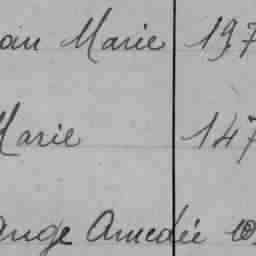 ean Marie 197
Marie 147
ange Amedée 10